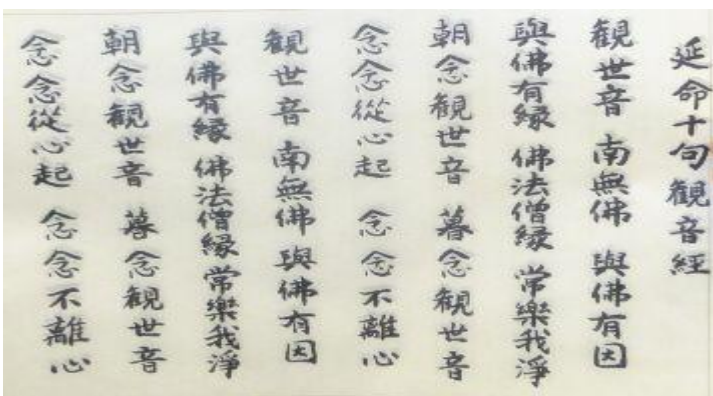 延命十句観音経
観世音 南無佛 與佛有因
與佛有縁 佛法僧縁 常樂我淨
朝念観世音 暮念観世音
念念從心起 念念不離心
観世音 南無佛 與佛有因
與佛有縁 佛法僧縁 常樂我淨
朝念観世音 暮念観世音
念念從心起 念念不離心